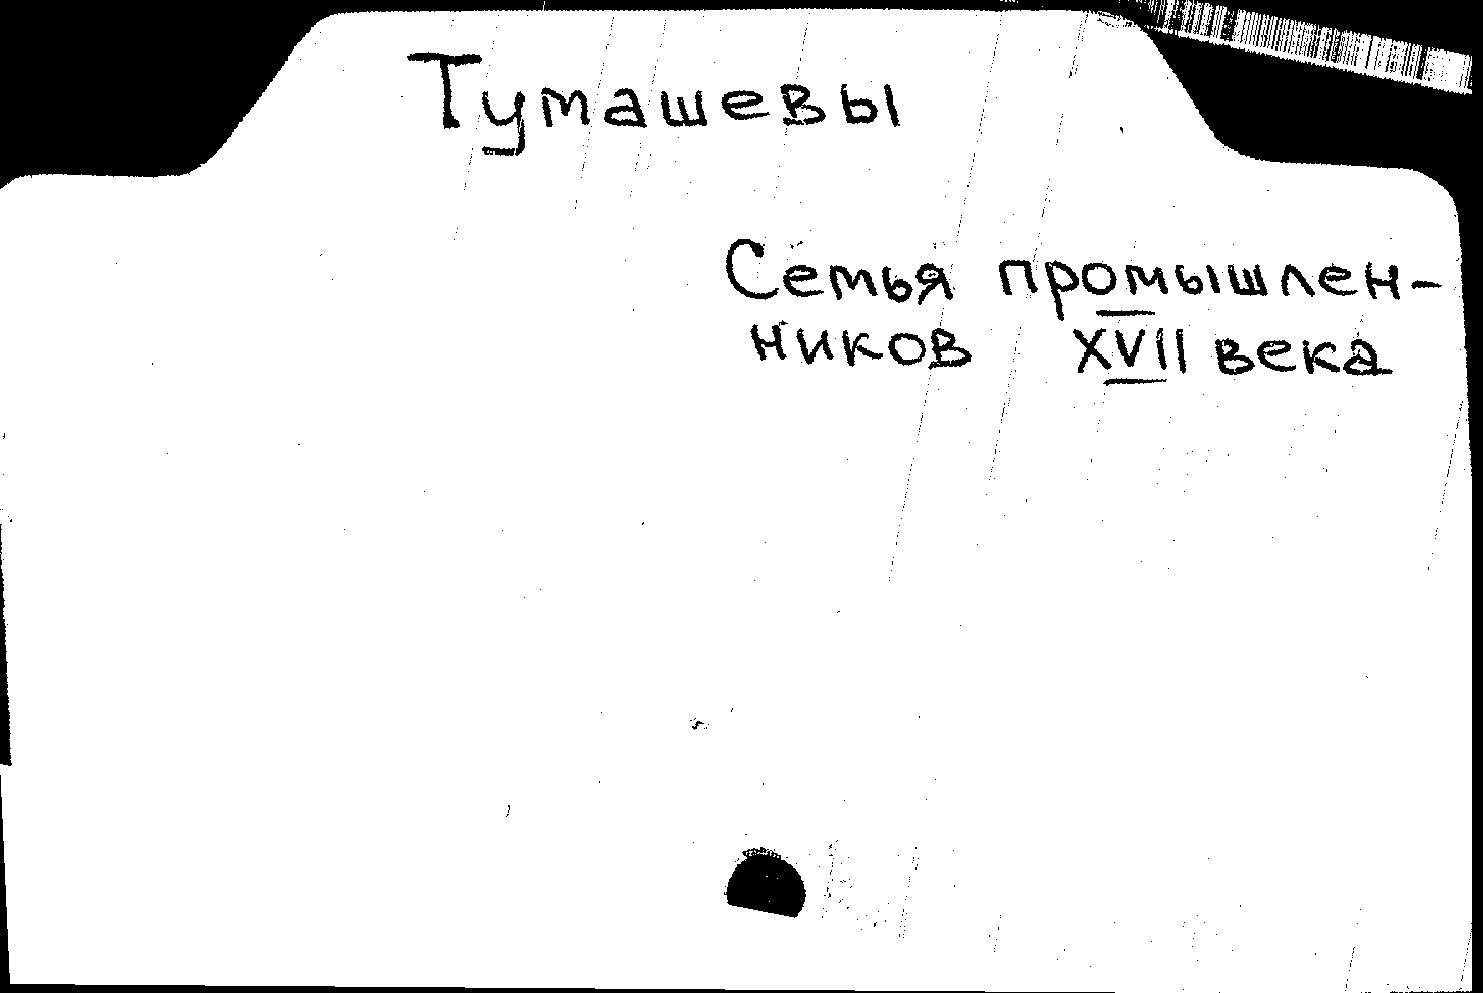 Тумашевы
Семья промышлен-
ников XVII века